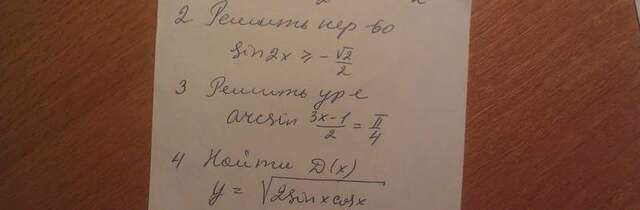 2 Решить нер-во
sin2x ≥ -√2/2
3 Решить ур-е
arcsin (3x-1)/2 = π/4
4 Найти D(x)
y = √(2sinxcosx)